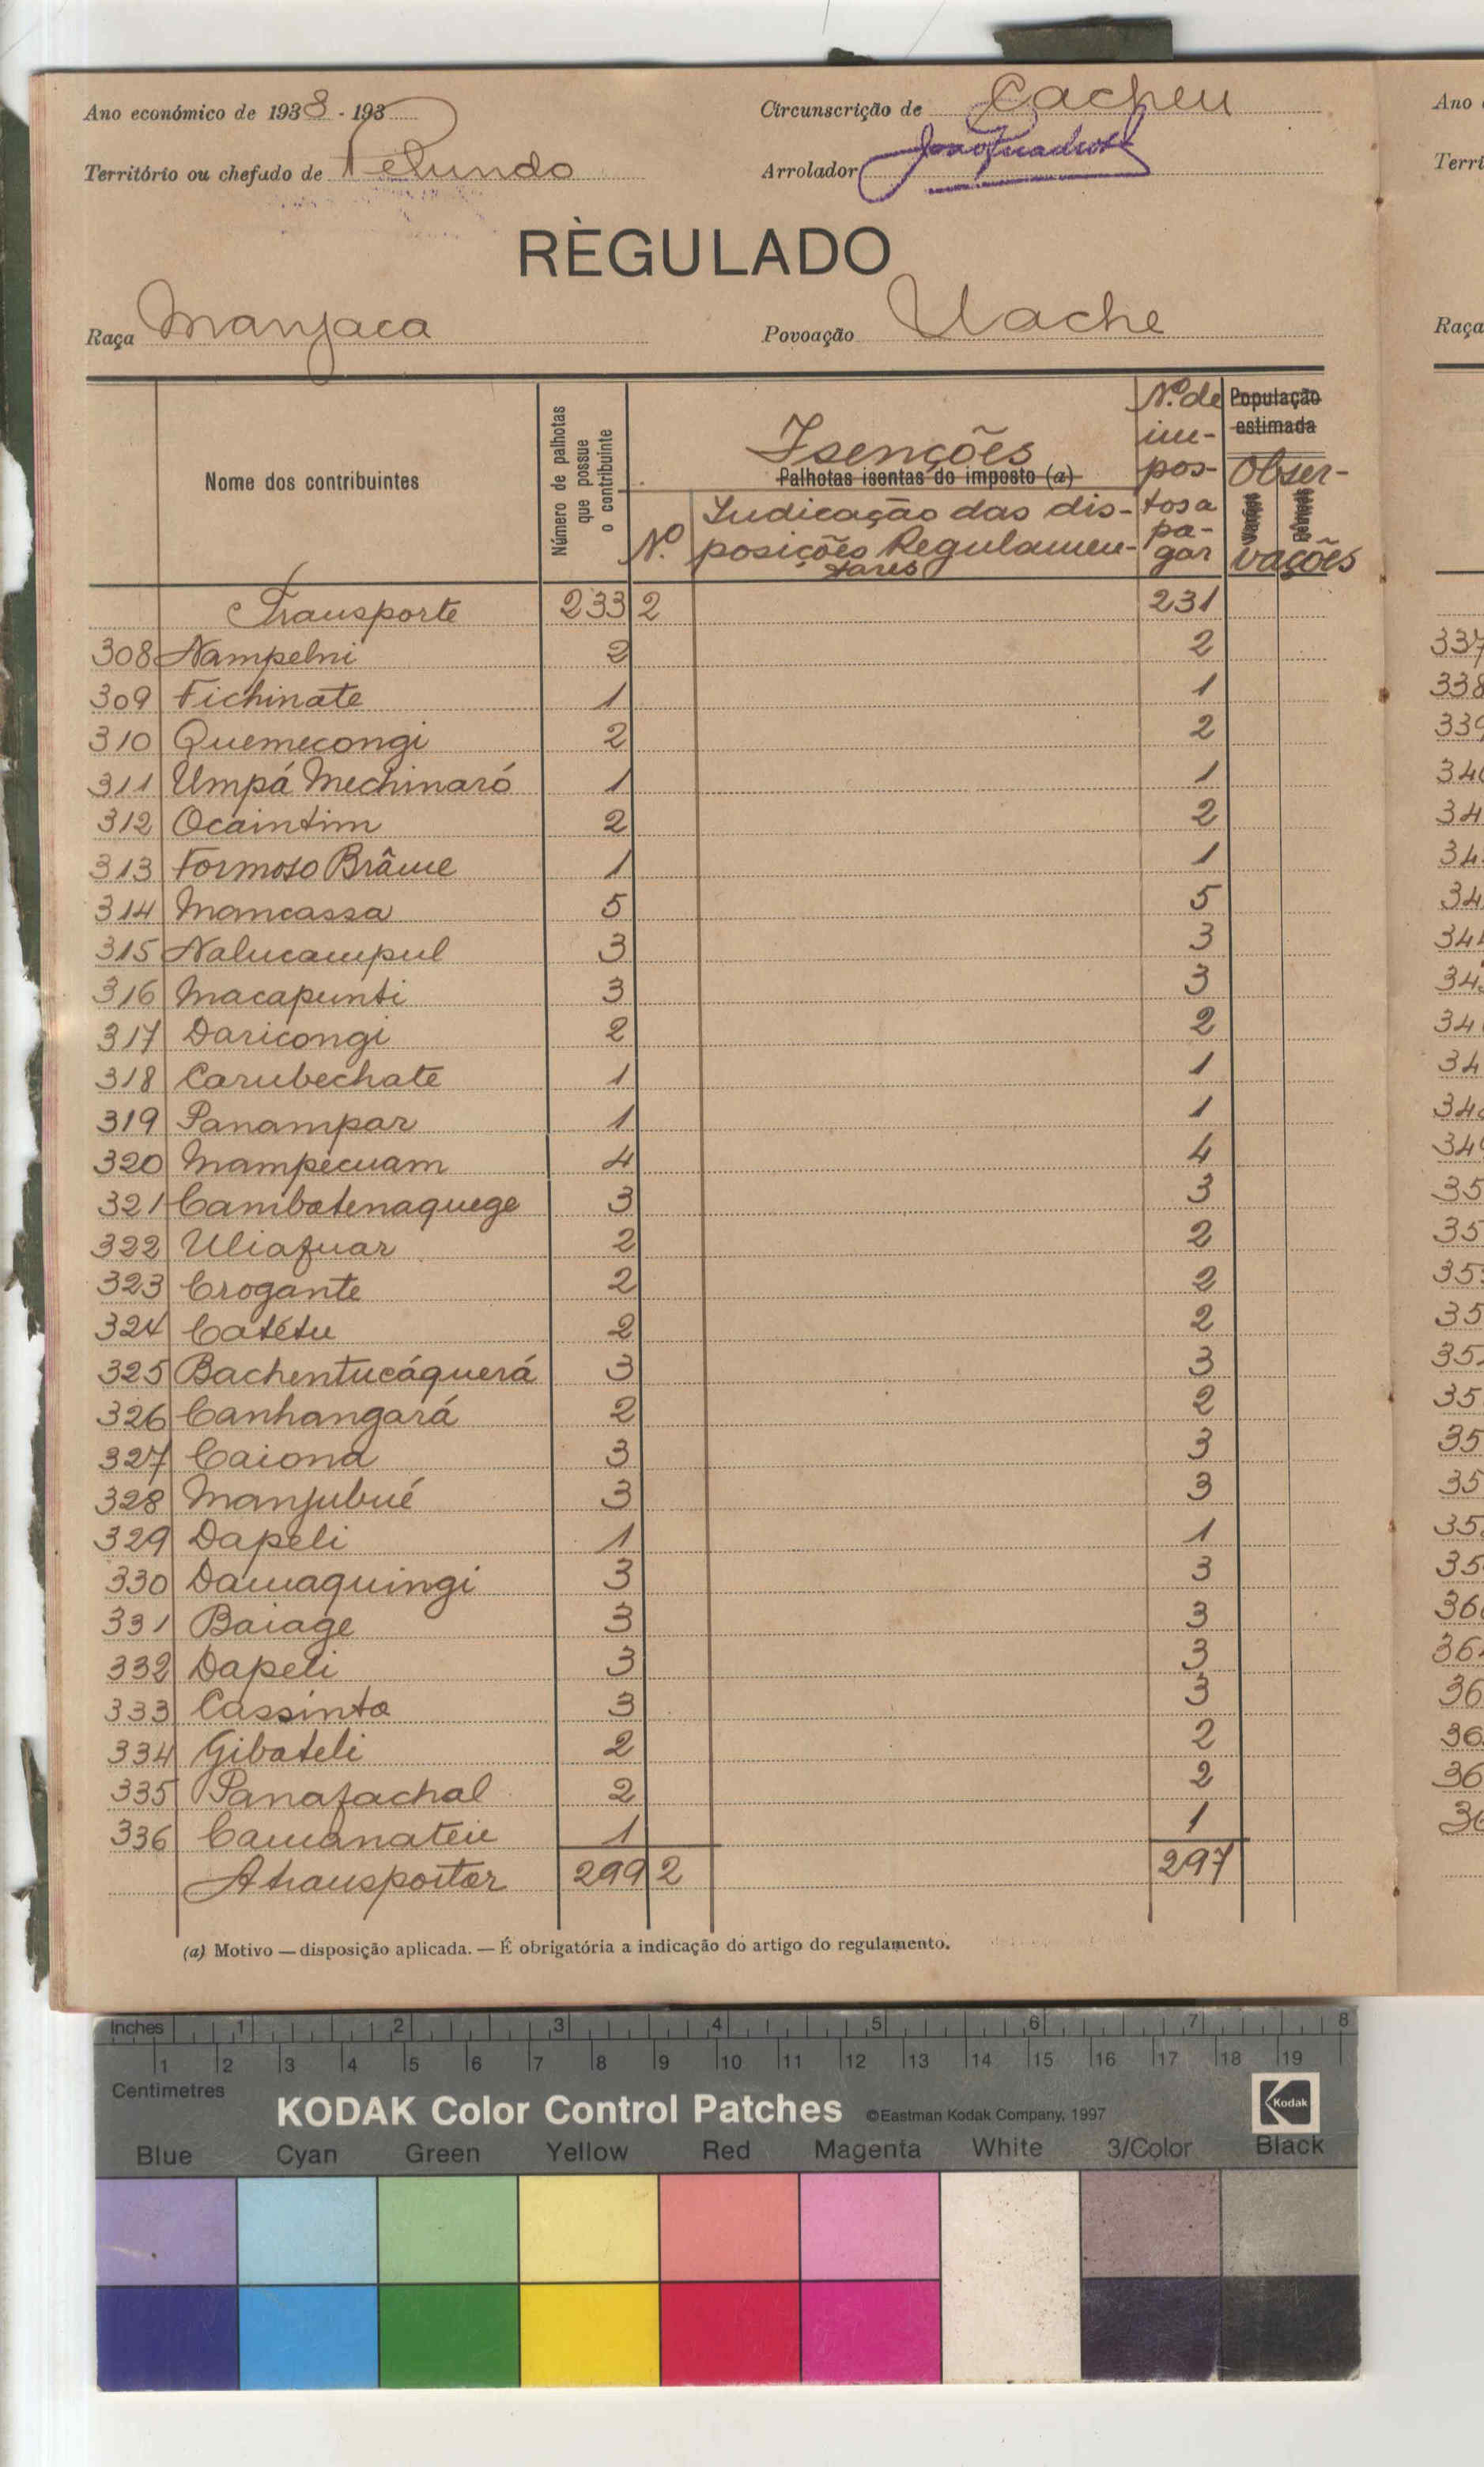 Ano económico de 1938 - 193
Circunscrição de Cacheu
Território ou chefado de Pelundo
Arrolador
RÈGULADO
Raça Manjaca
Povoação Uache
Nome dos contribuintes
Número de palhotas que possue o contribuinte
Isenções
Palhotas isentas do imposto (a)
N.º
Indicação das disposições Regulamentares
N.º de impostos a pagar
População estimada
Observações
Transporte 233 2 231
308 Nampelni 2 2
309 Fichinate 1 1
310 Quemecongi 2 2
311 Umpá Mechinaró 1 1
312 Ocaintim 2 2
313 Formoso Brâme 1 1
314 Mancassa 5 5
315 Nalucampul 3 3
316 Macapunti 3 3
317 Daricongi 2 2
318 Carubechate 1 1
319 Panampar 1 1
320 Mampecuam 4 4
321 Cambatenaquege 3 3
322 Uliafuar 2 2
323 Crogante 2 2
324 Catétu 2 2
325 Bachentucáquerá 3 3
326 Canhangará 2 2
327 Caiona 3 3
328 Manjubué 3 3
329 Dapeli 1 1
330 Damaquingi 3 3
331 Baiage 3 3
332 Dapeli 3 3
333 Cassinta 3 3
334 Gibateli 2 2
335 Panafachal 2 2
336 Camanateie 1 1
A transportar 299 2 297
(a) Motivo — disposição aplicada. — É obrigatória a indicação do artigo do regulamento.
Ano
Terri
Raça
337
338
Inches 1 2 3 4 5 6 7 8
1 2 3 4 5 6 7 8 9 10 11 12 13 14 15 16 17 18 19
Centimetres
KODAK Color Control Patches ©Eastman Kodak Company, 1997 Kodak
Blue Cyan Green Yellow Red Magenta White 3/Color Black